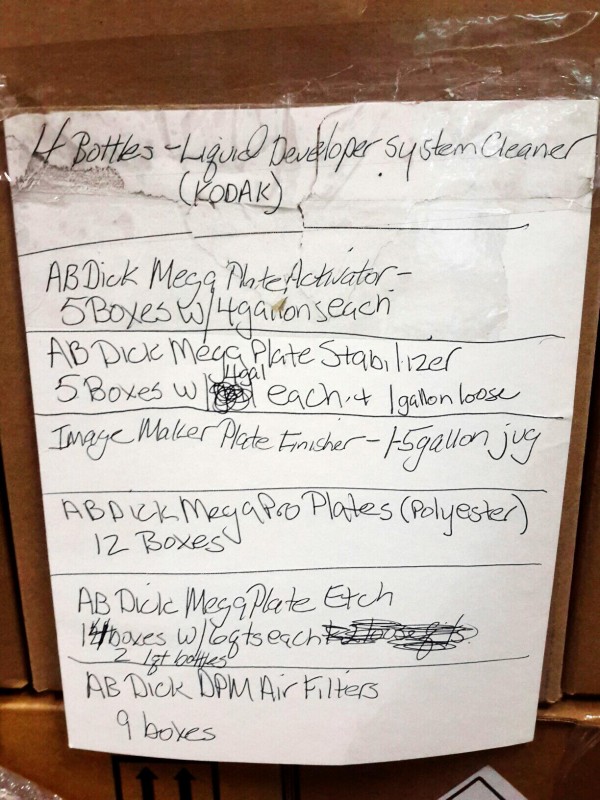 4 Bottles - Liquid Developer System Cleaner
(KODAK)
AB Dick Mega Plate Activator -
5 Boxes w/ 4 gallons each
AB Dick Mega Plate Stabilizer
4gal
5 Boxes w/ each + 1 gallon loose
Image Maker Plate Finisher - 1-5 gallon jug
AB Dick MegaPro Plates (Polyester)
12 Boxes
AB Dick Mega Plate Etch
14 boxes w/ 6qts each
2 1qt bottles
AB Dick DPM Air Filters
9 boxes